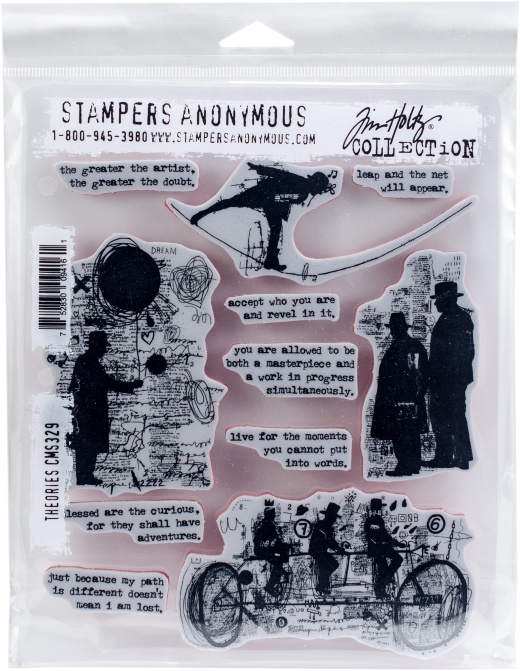 STAMPERS ANONYMOUS
1-800-945-3980 WWW.STAMPERSANONYMOUS.COM
Tim Holtz®
COLLECTION
the greater the artist,
the greater the doubt.
leap and the net
will appear.
DREAM
accept who you are
and revel in it.
you are allowed to be
both a masterpiece and
a work in progress
simultaneously.
live for the moments
you cannot put
into words.
lessed are the curious,
for they shall have
adventures.
just because my path
is different doesn't
mean i am lost.
THEORIES CMS329
7 52830 09416 1
7
6